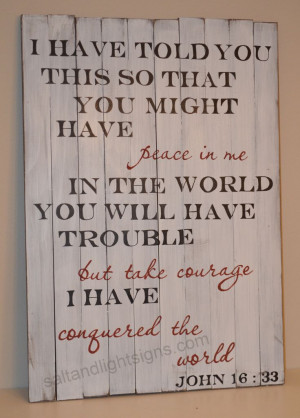 I HAVE TOLD YOU
THIS SO THAT
YOU MIGHT
HAVE
peace in me
IN THE WORLD
YOU WILL HAVE
TROUBLE
but take courage
I HAVE
conquered the
world
saltandlightsigns.com
JOHN 16:33